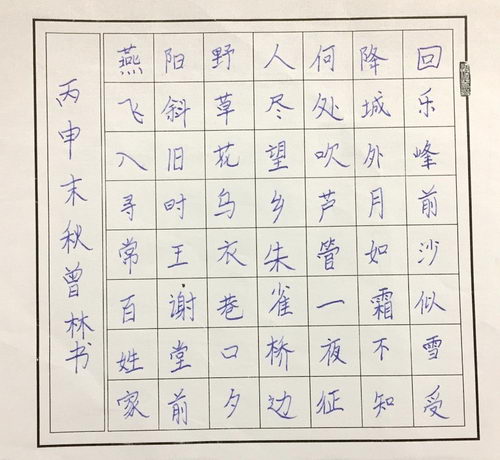 回乐峰前沙似雪受
降城外月如霜不知
何处吹芦管一夜征
人尽望乡朱雀桥边
野草花乌衣巷口夕
阳斜旧时王谢堂前
燕飞入寻常百姓家
丙申末秋曾林书